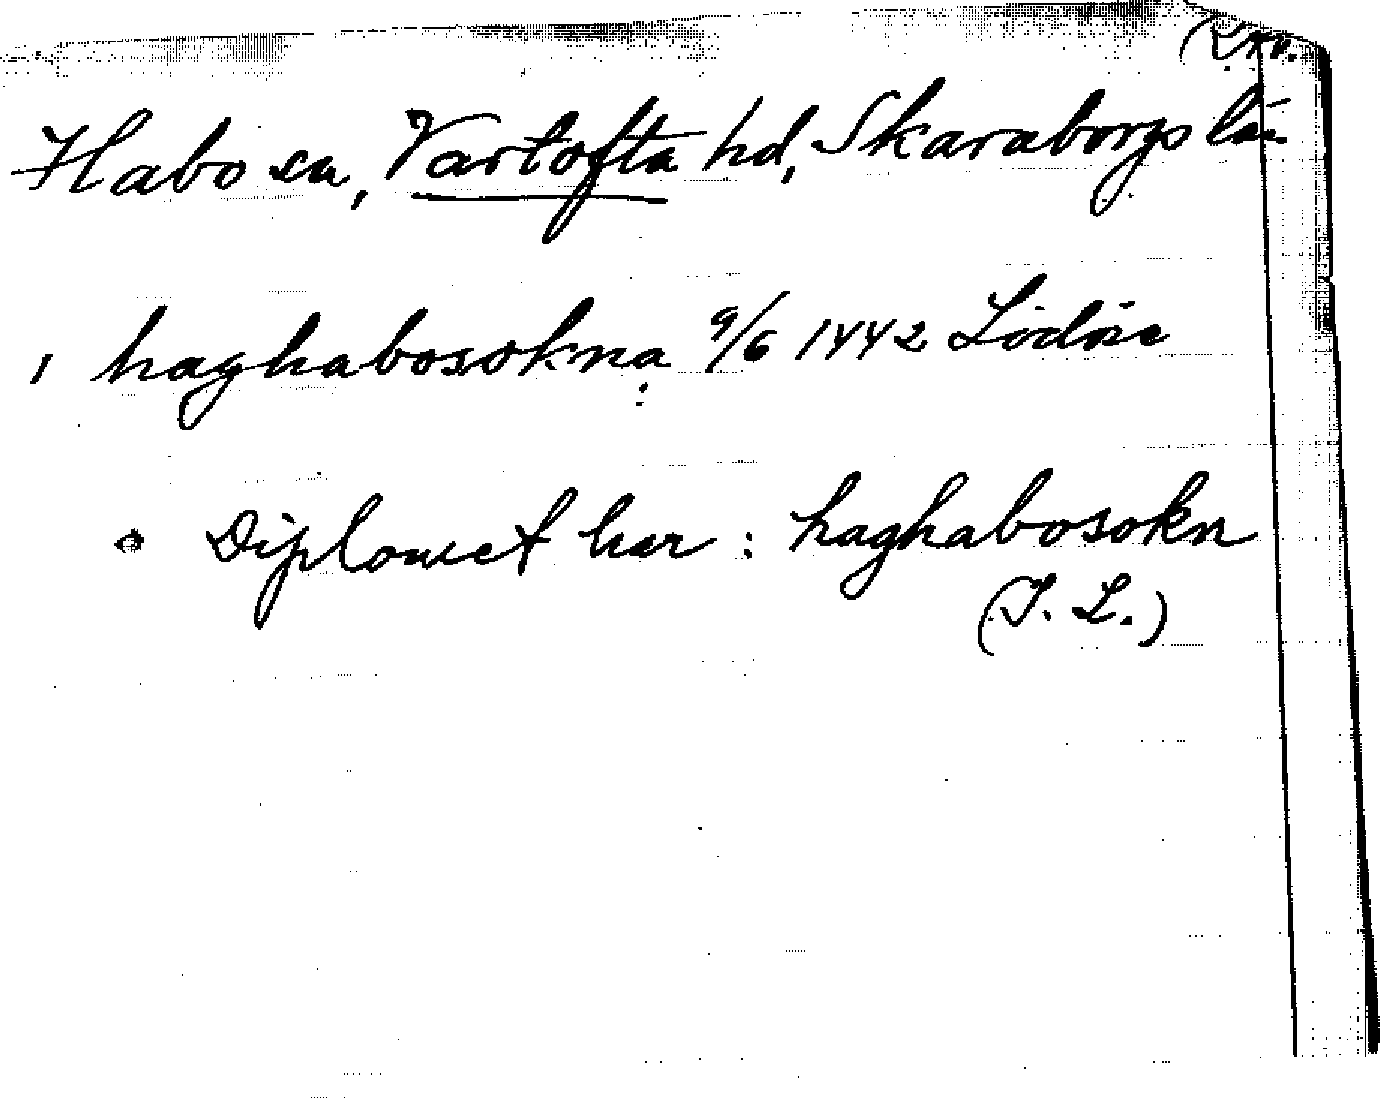 Habo sn, Vartofta hd, Skaraborgs län
i haghabosokna 9/6 1442 Lödöse
Diplomet har: haghabosokn
(I. L.)